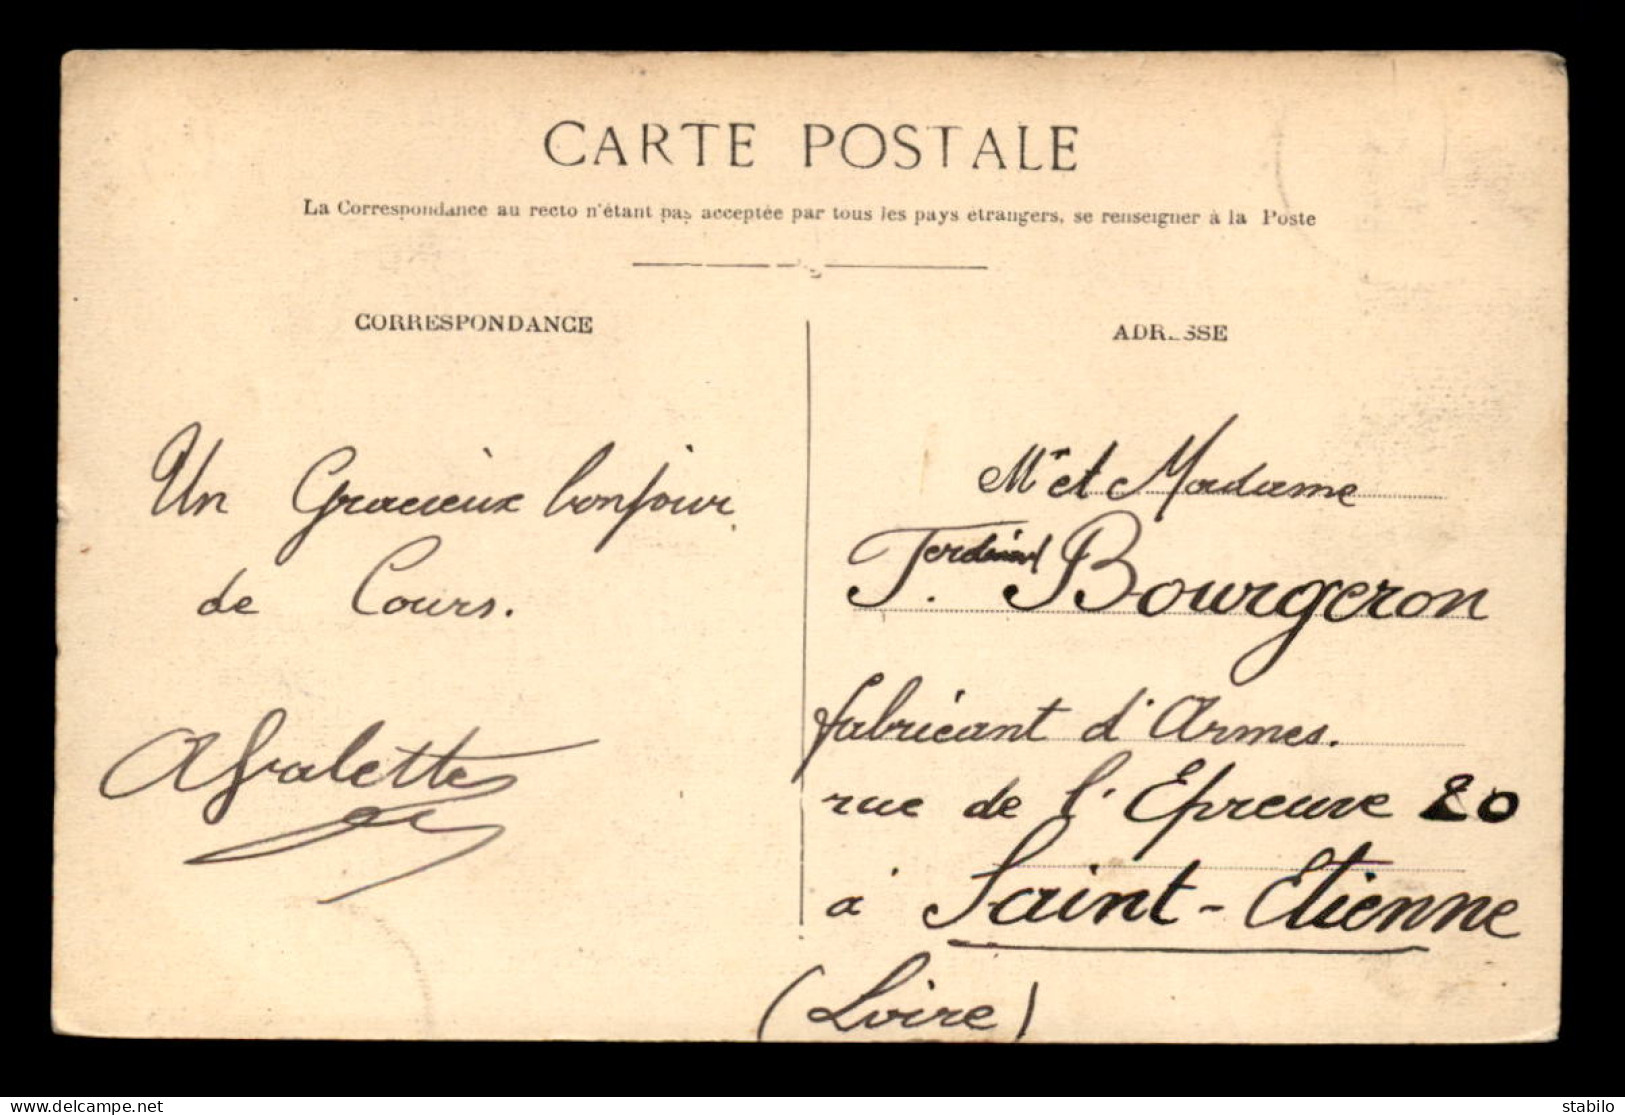 CARTE POSTALE
La Correspondance au recto n'étant pas acceptée par tous les pays étrangers, se renseigner à la Poste
CORRESPONDANCE
Un Gracieux bonjour
de Cours.
ADRESSE
Mr et Madame
Ferdinand Bourgeron
fabricant d'Armes.
rue de l'Epreuve 20
à Saint-Etienne
(Loire)
delcampe.net
stabilo